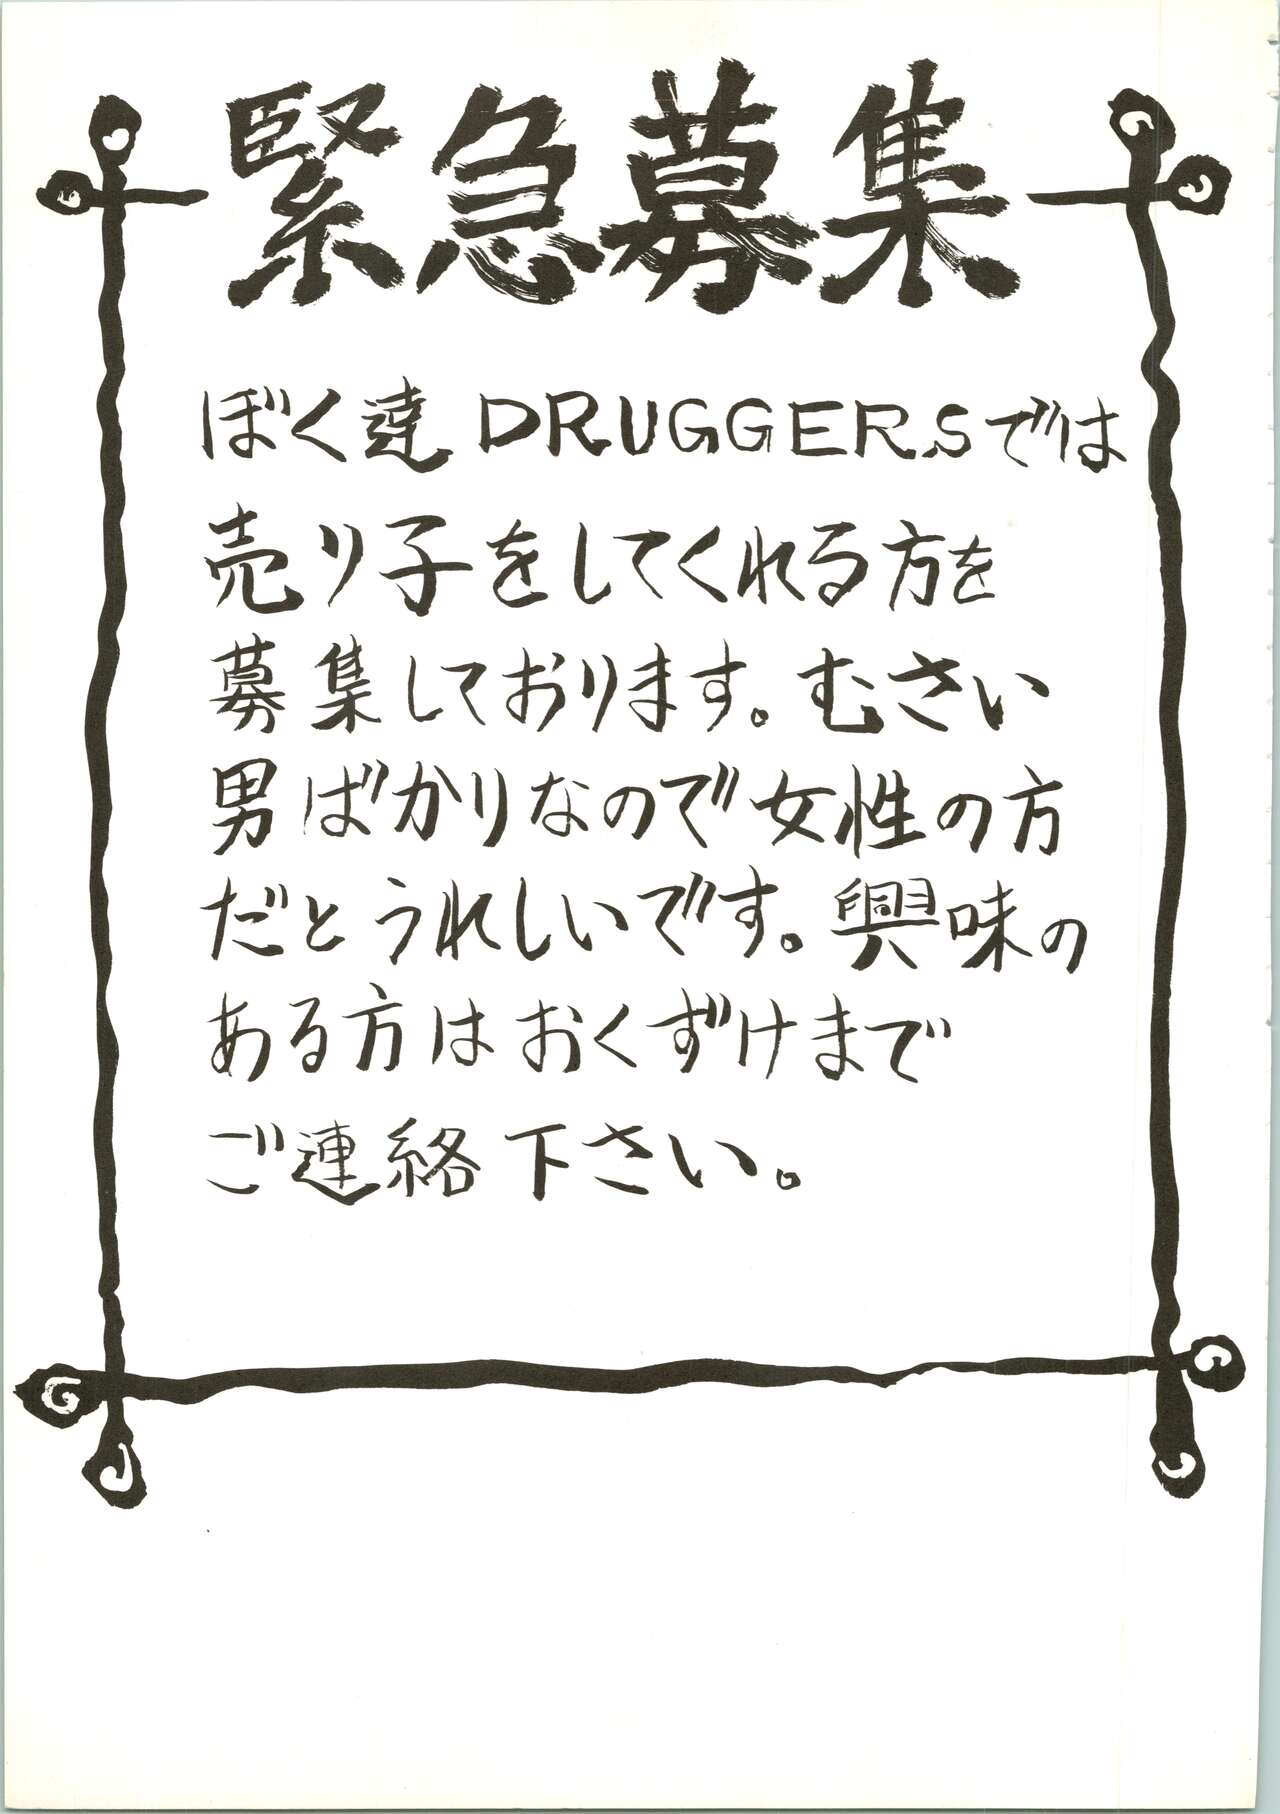 緊急募集
ぼく達DRUGGERSでは
売り子をしてくれる方を
募集しております。むさい
男ばかりなので女性の方
だとうれしいです。興味の
ある方はおくずけまで
ご連絡下さい。